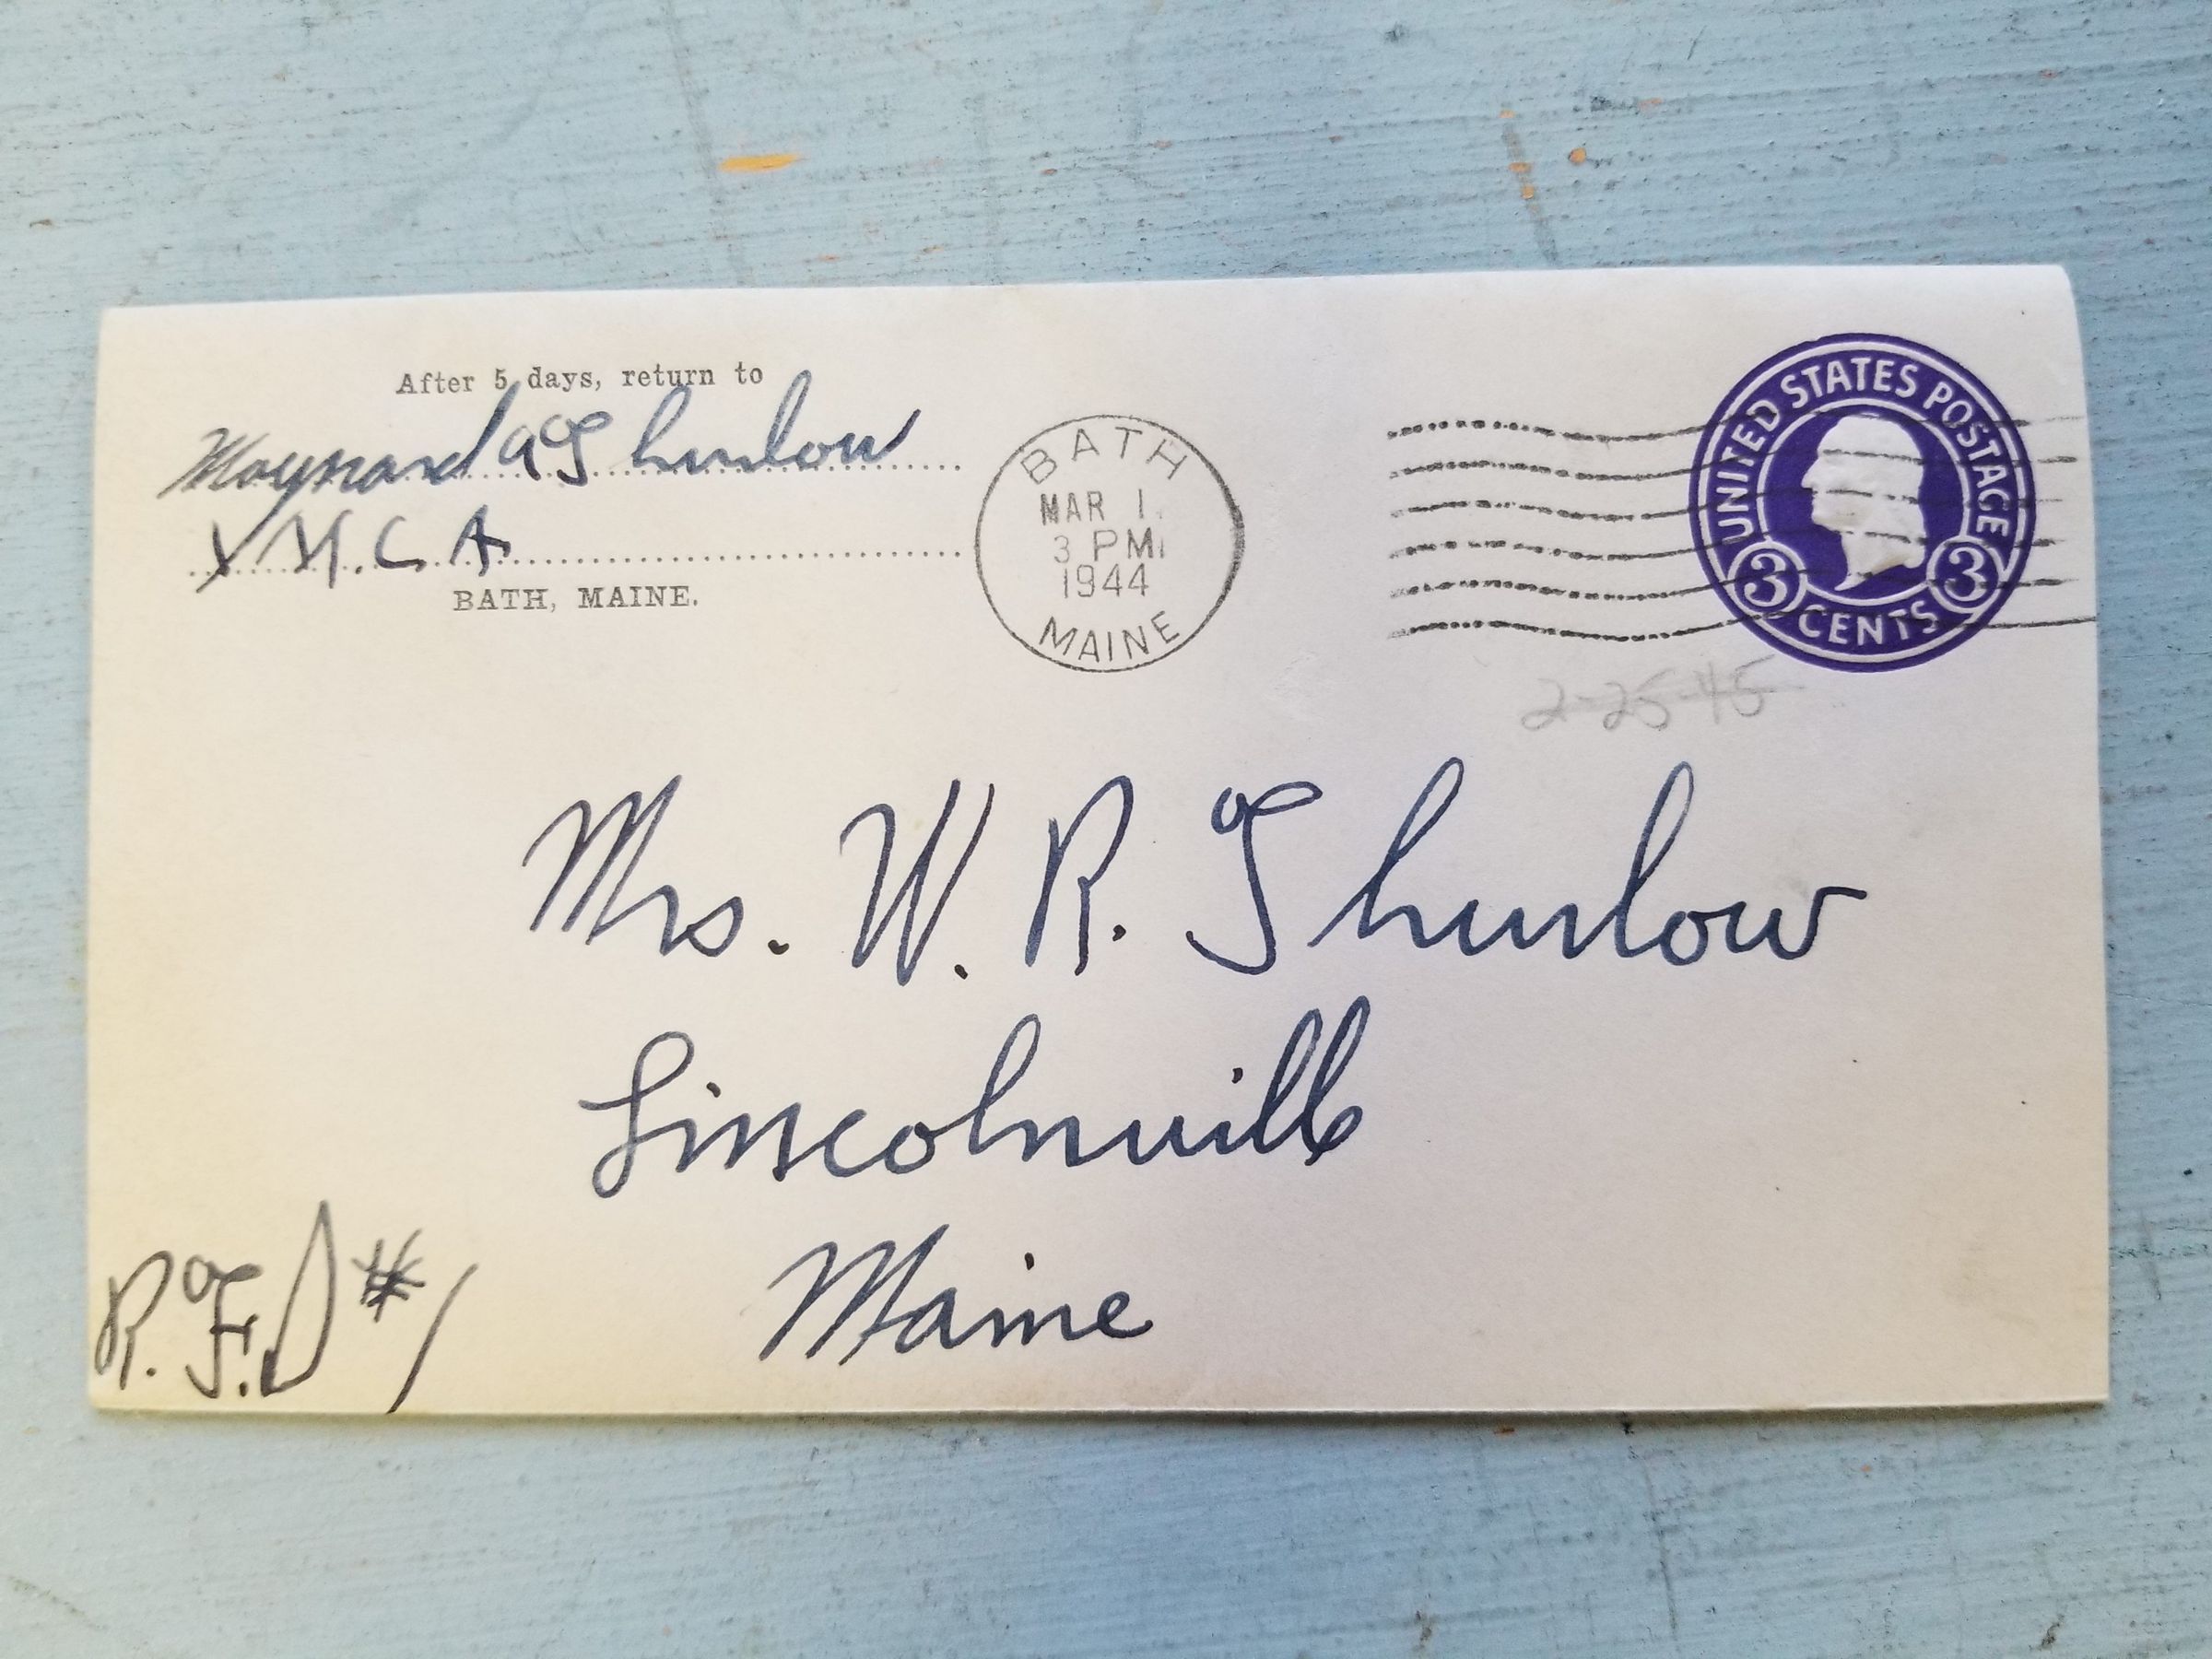 After 5 days, return to
Maynard Thurlow
Y M.C.A
BATH, MAINE.
BATH
MAR 1
3 PM
1944
MAINE
UNITED STATES POSTAGE
3 CENTS 3
2-25-45
Mrs. W. R. Thurlow
Lincolnville
Maine
R.F.D #1